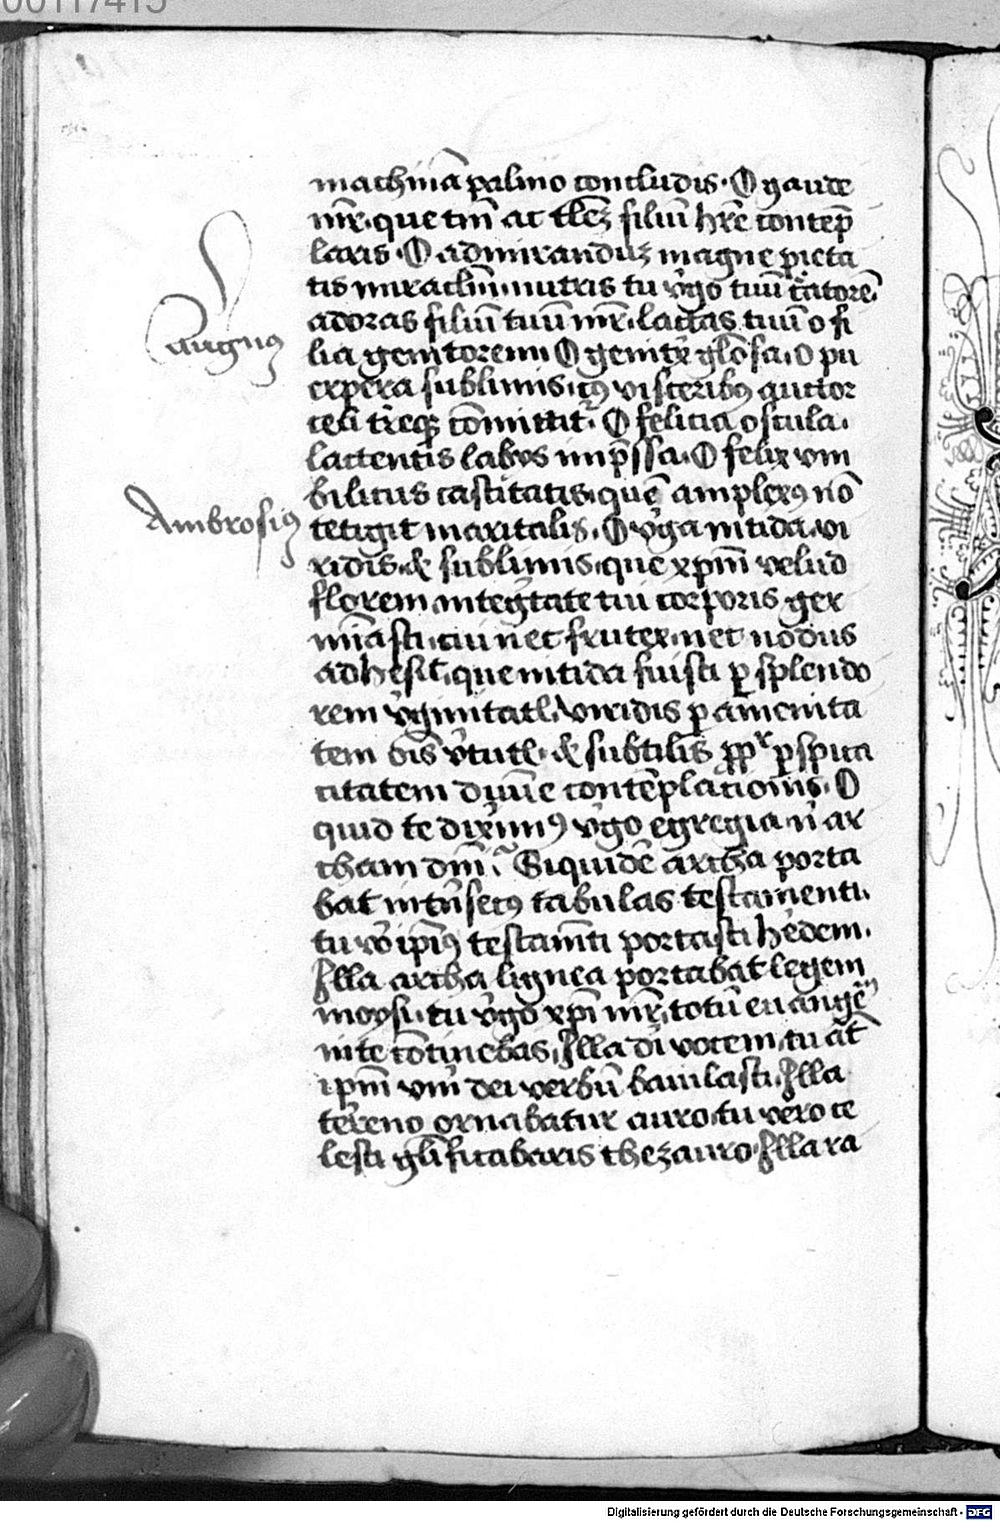 00117415
machinā palmo concludis. O gaude
mr̄. que tm̄ ac tlēꝫ filiū hr̄e contēp
laris. O admiranduꝫ magne pieta
tis miraclm̄. nutris tu v̾go tuū c̾atorē.
adoras filiū tuū mr̄. lactas tuū o fi
Augꝯ
lia genitorem. O genit̾x gl̄osa. O pu
erpera sublimis. cꝯ visceribꝯ auctor
celi t̾req̢ cōmittit̾. O felicia oscula.
lactentis labiis imp̄ssa. O felix um
bilicus castitatis. quē amplexꝯ nō
Ambrosiꝯ
tetigit maritalis. O v̾ga nitida. vi
ridis. & sublimis. que xp̄m velud
florem integ̾tate tui corporis ger
mīasti. cui nec frutex. nec nodus
adhesit. que nitida fuisti ꝑ splendo
rem v̾ginitatꝭ. viridis ꝑ amenita
tem ois v̾tutꝭ. & subtilis ꝓpt̾ ꝑspica
citatem diuīe contēplac̄ionis. O
quid te dixim̾ꝯ v̾go egregia n̾ ar
cham dm̄i. Siquidē archa porta
bat int̾nsecꝯ tabulas testamenti.
tu v̾o ip̄iꝯ testam̄ti portasti h̾edem.
Illa archa lignea portabat legem
moysi. tu v̾go xp̄i mr̄. totū euangelīū
in te cōtinebas. Illa di̾ vocem. tu āt
ip̄m vnī dei verbū baiulasti. Illa
terreno ornabatur auro. tu vero ce
lesti gl̄ificabaris thezauro. Illa ra
Digitalisierung gefördert durch die Deutsche Forschungsgemeinschaft - DFG